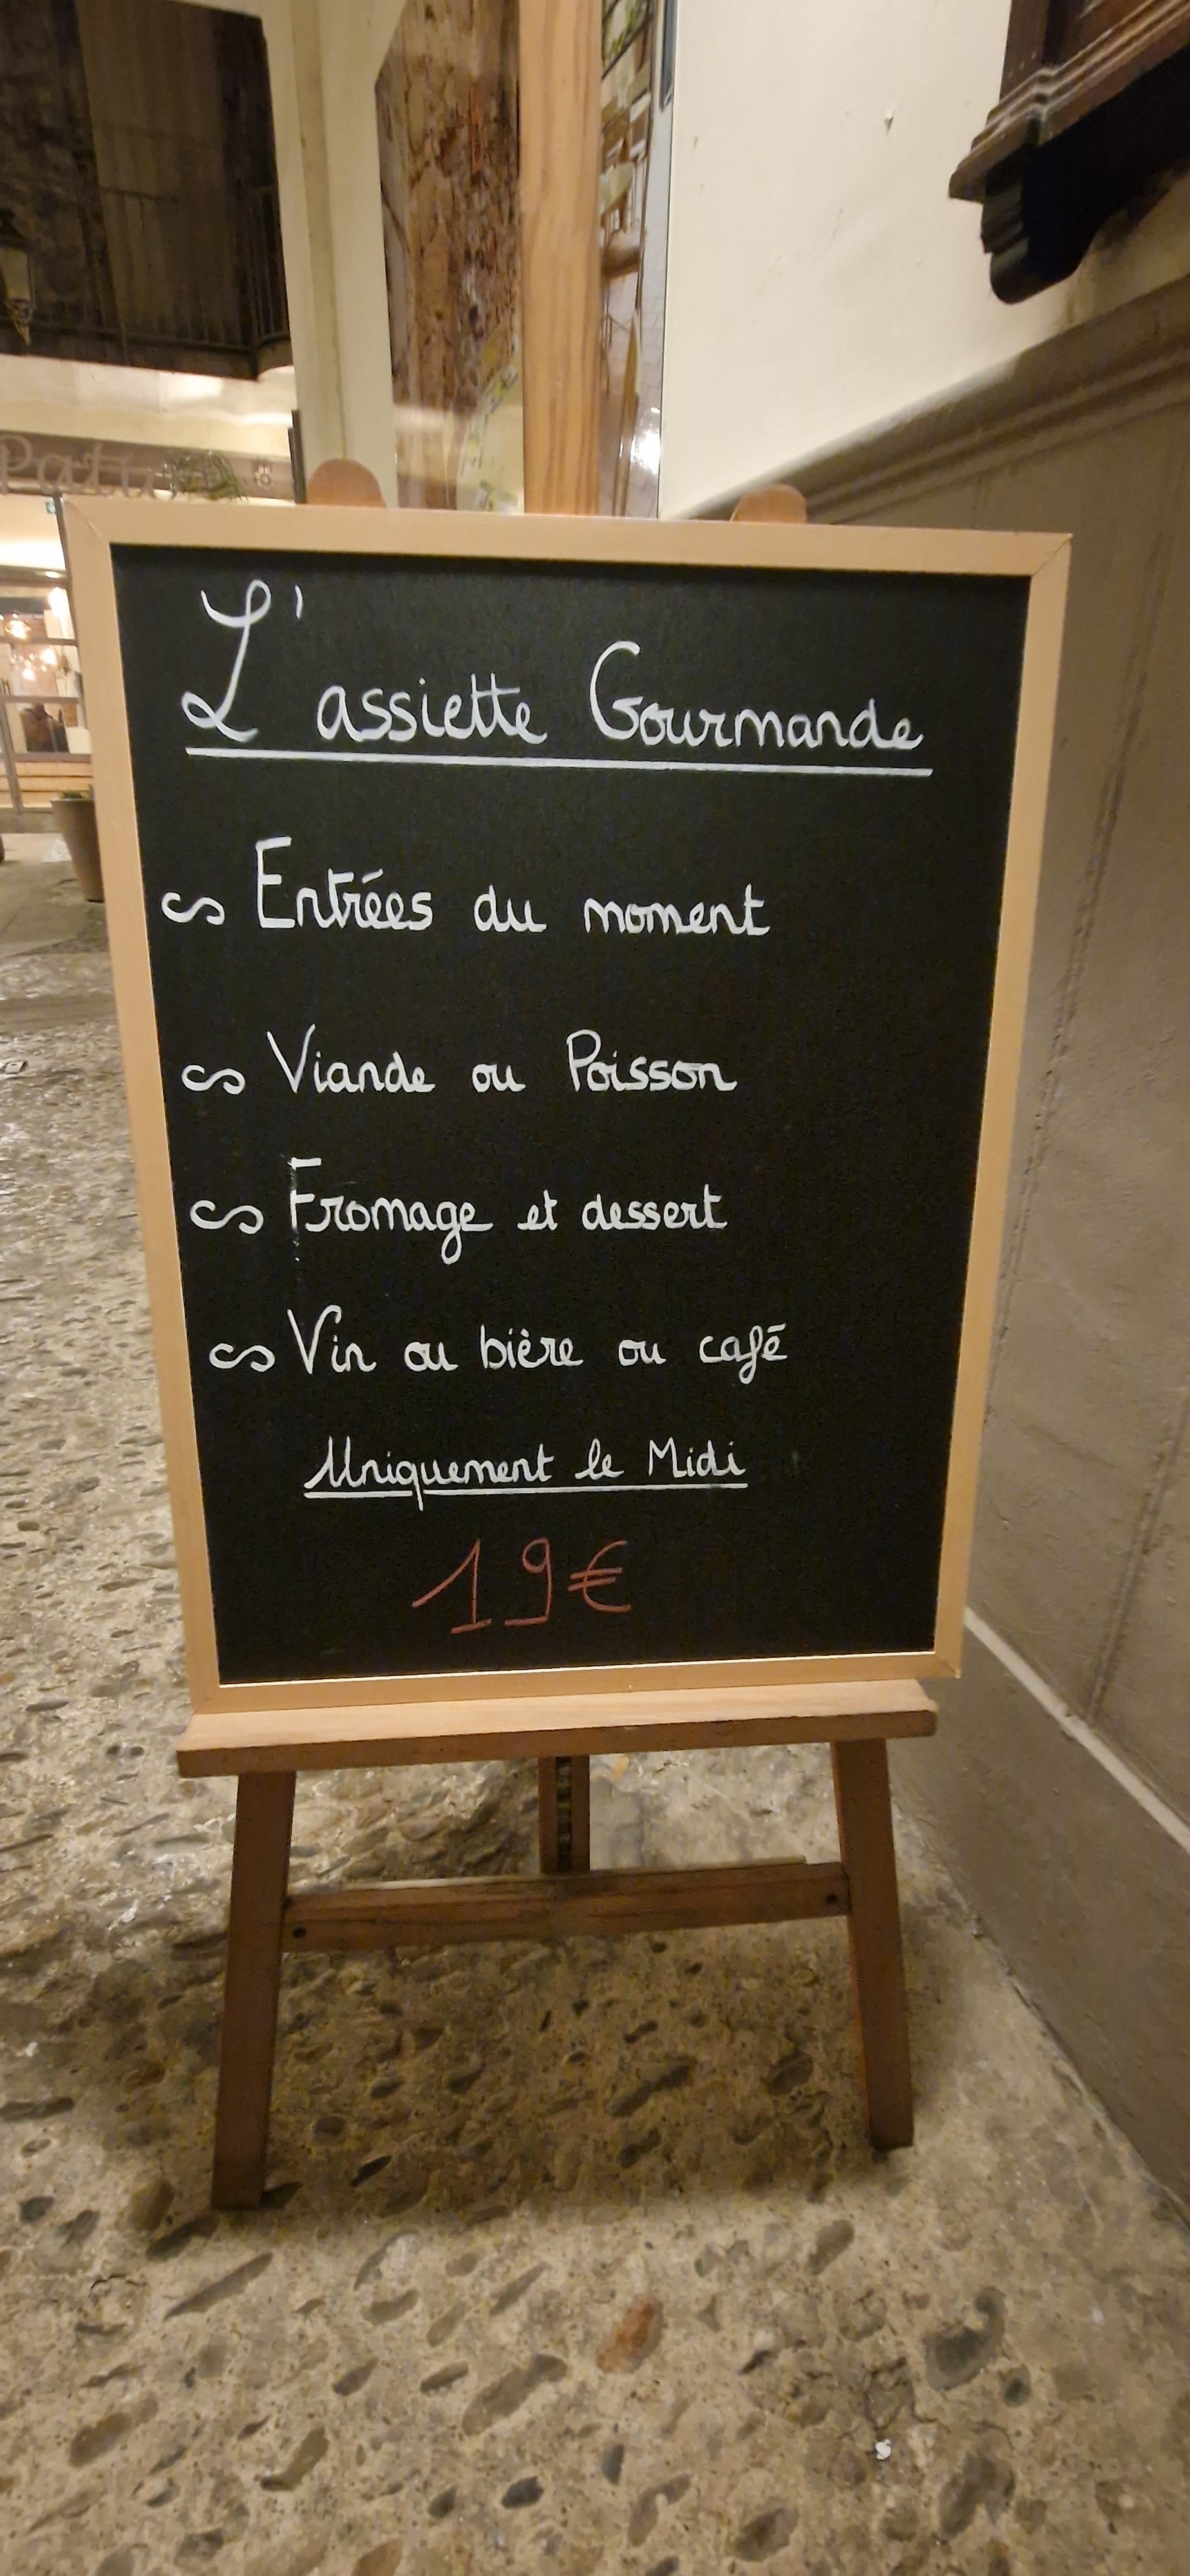 L'assiette Gourmande
Entrées du moment
Viande ou Poisson
Fromage et dessert
Vin ou bière ou café
Uniquement le Midi
19€